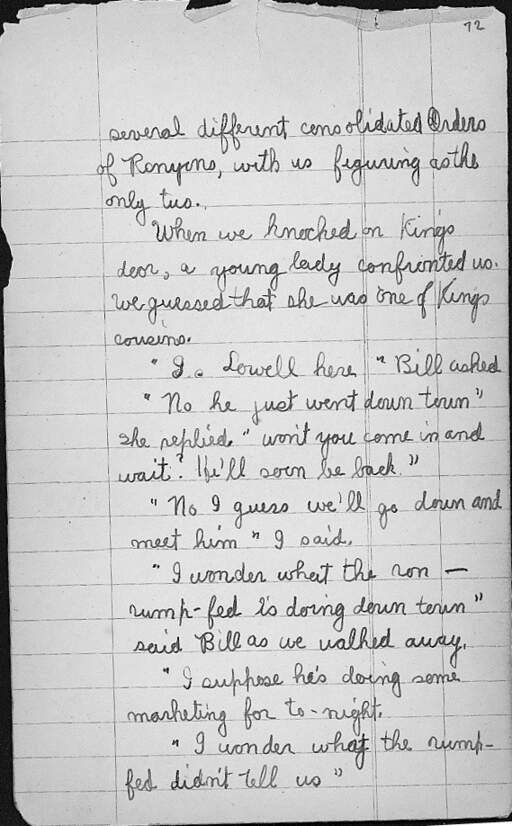 72
several different consolidated Orders
of Ronyons, with us figuring as the
only two.
When we knocked on King's
door, a young lady confronted us.
We guessed that she was one of King's
cousins.
"Is Lowell here" Bill asked
"No he just went down town"
she replied. "won't you come in and
wait? He'll soon be back."
"No I guess we'll go down and
meet him" I said.
"I wonder what the ron —
rump-fed is doing down town"
said Bill as we walked away.
"I suppose he's doing some
marketing for to-night.
"I wonder what the rump-
fed didn't tell us"